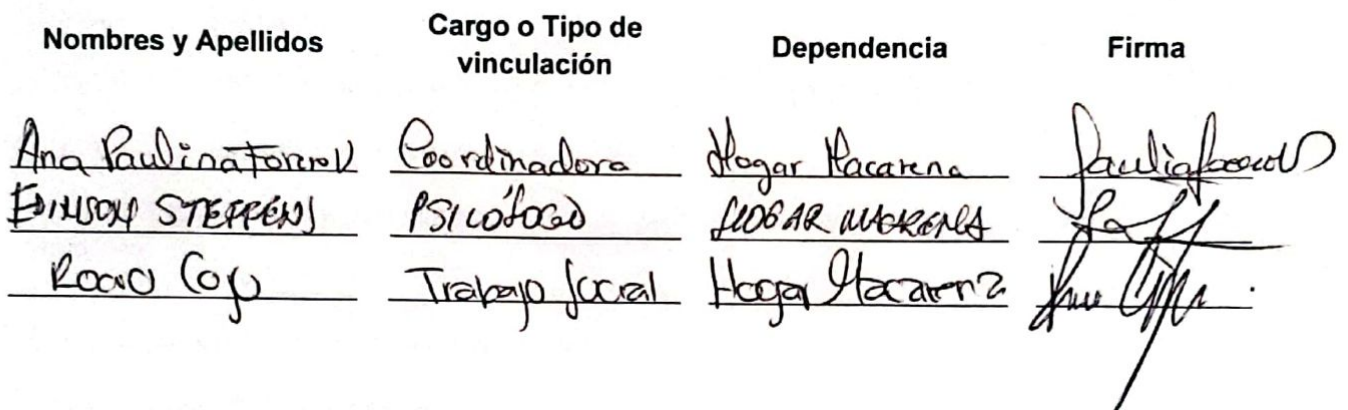 Nombres y Apellidos Cargo o Tipo de vinculación Dependencia Firma
Ana Paulina Coordinadora Hogar Macarena
EDINSON STEFFENS PSICÓLOGO HOGAR MACARENA
Rocio Trabajo Social Hogar Macarena